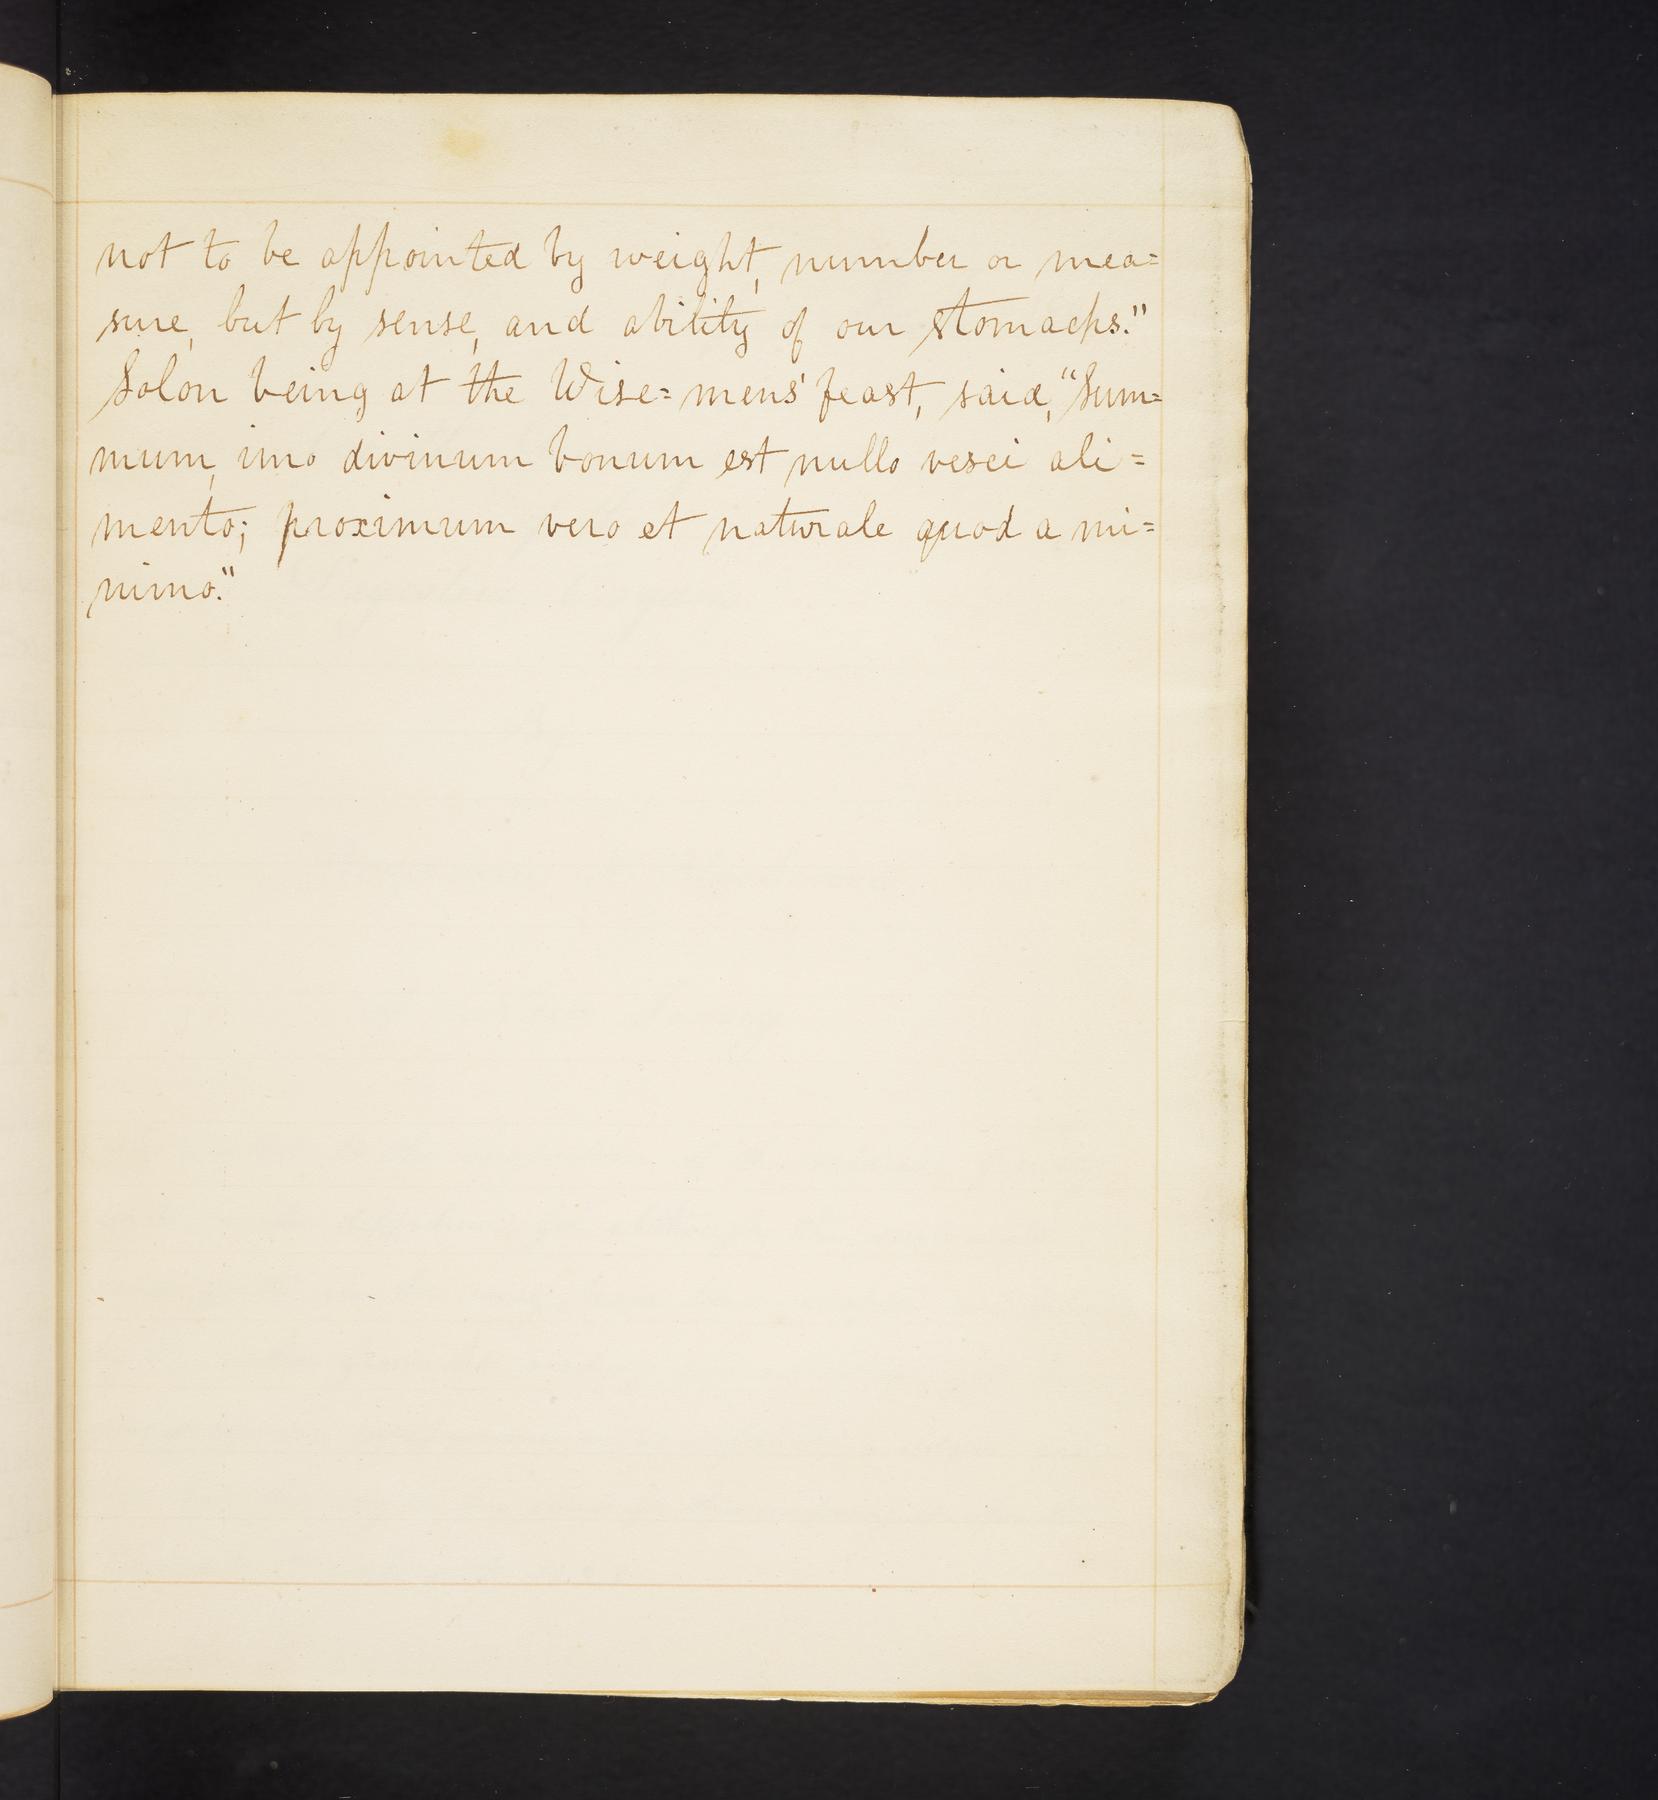 not to be appointed by weight, number or mea=
sure, but by sense, and ability of our stomachs."
Solon being at the Wise=mens' feast, said, "Sum=
mum, imo divinum bonum est nullo vesci ali=
mento; proximum vero et naturale quod a mi=
nimo."